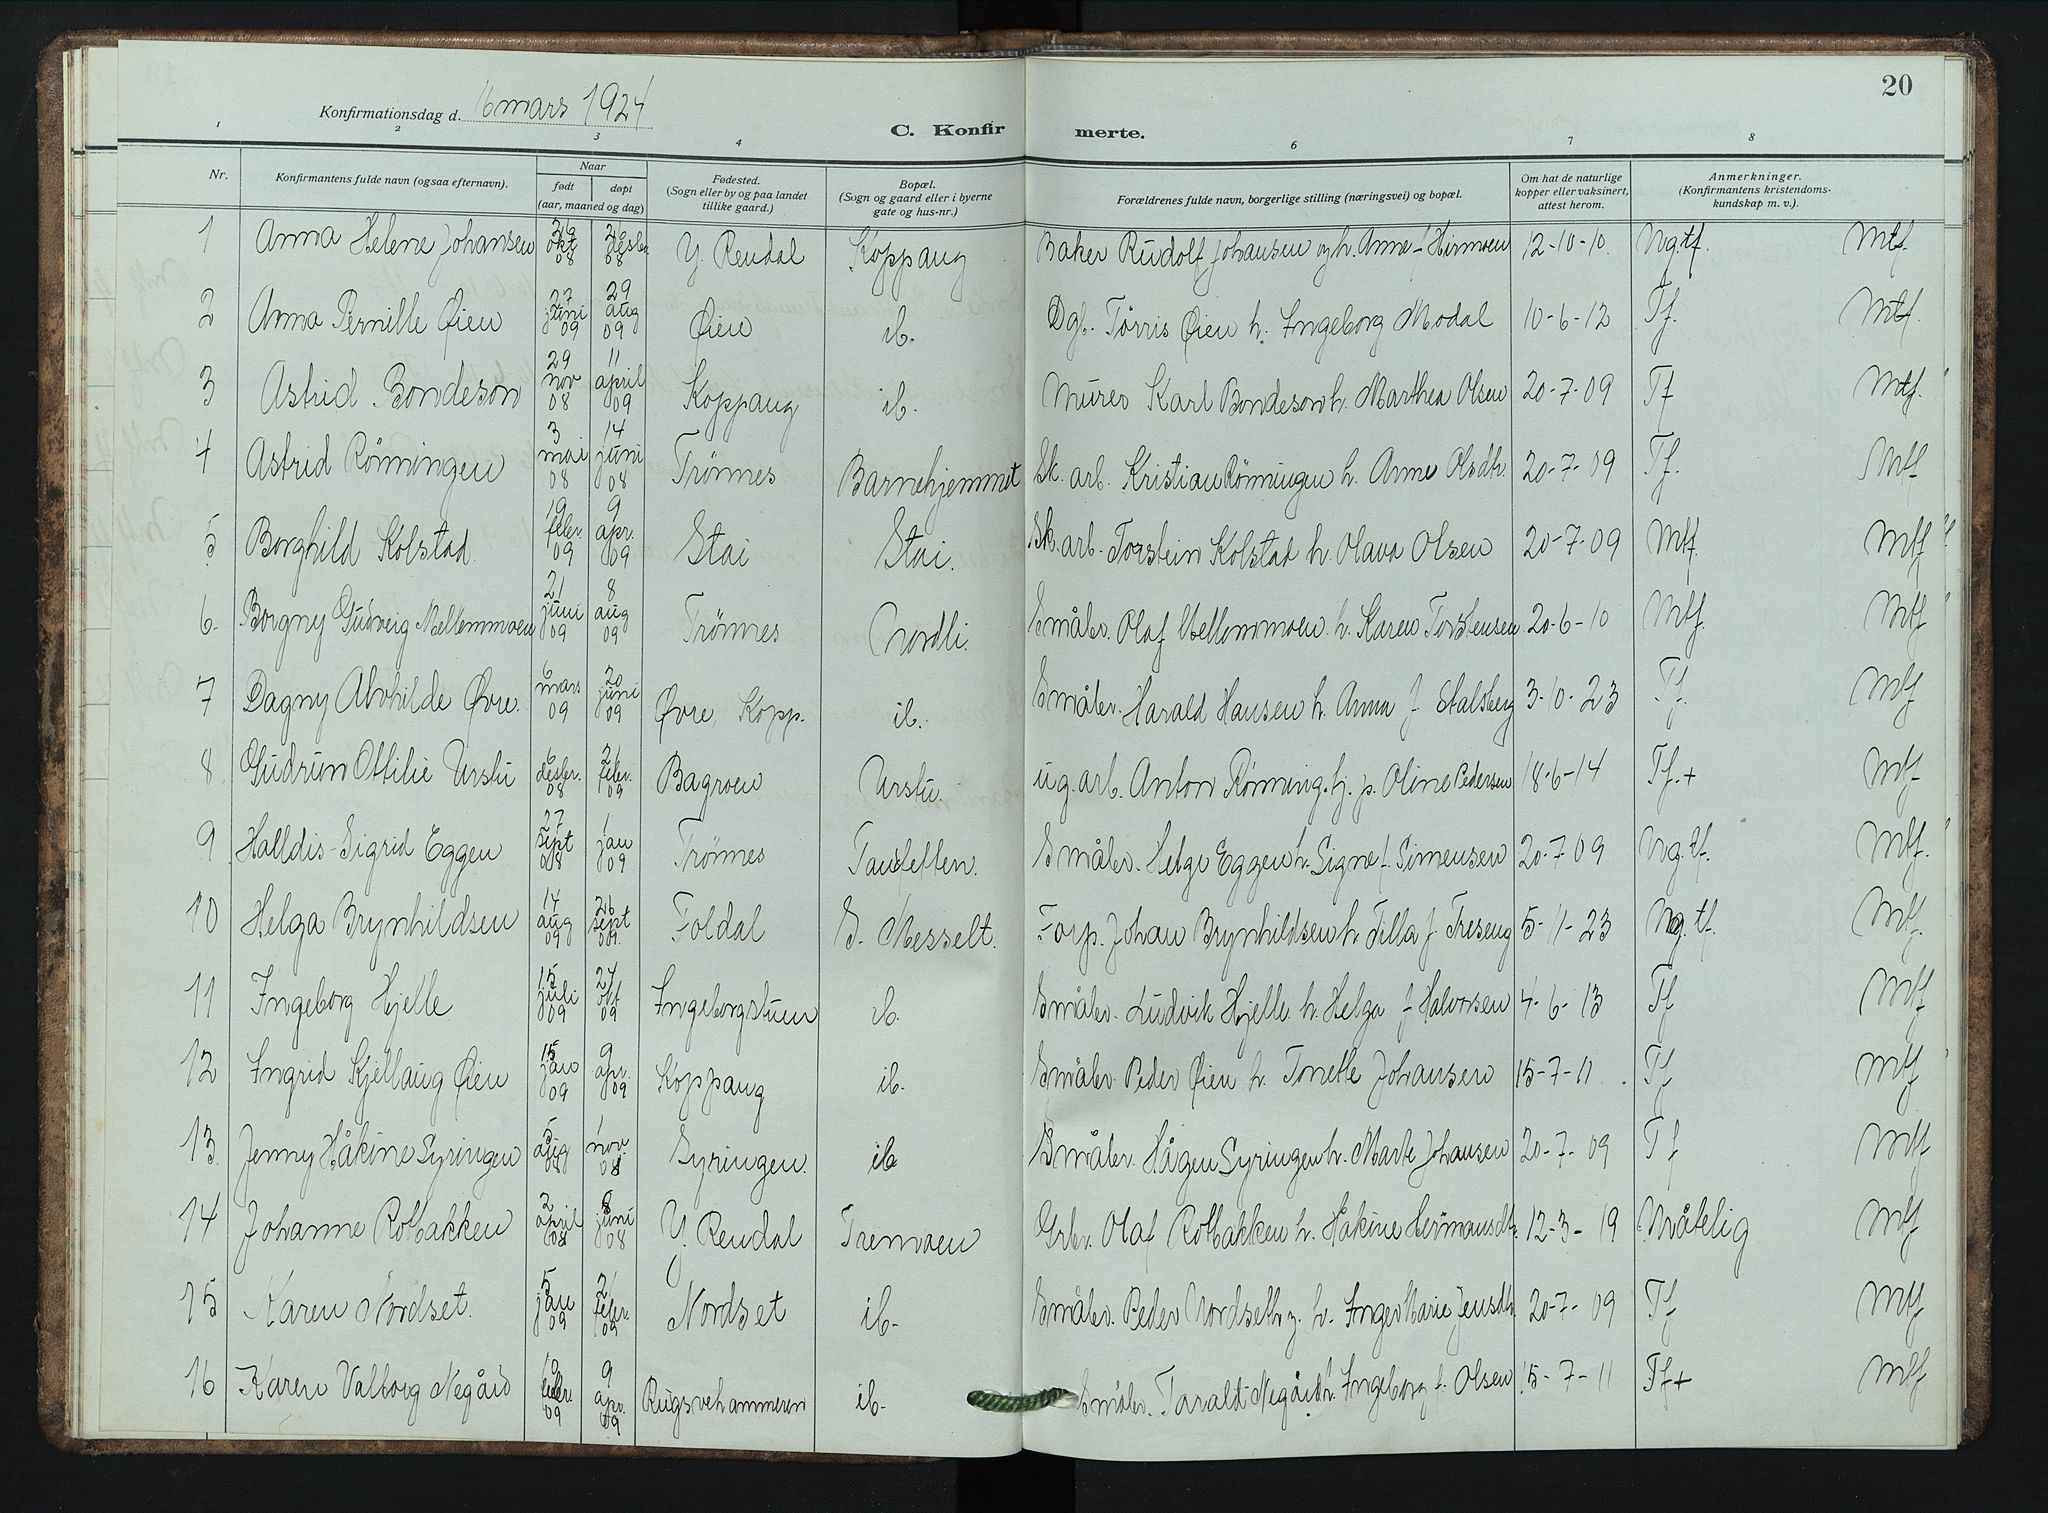 20
Konfirmationsdag d. 16 mars 1924
C. Konfirmerte.
1 2 3 4 6 7 8
Nr. | Konfirmantens fulde navn (ogsaa efternavn). | Naar født døpt (aar, maaned og dag) | Fødested. (Sogn eller by og paa landet tillike gaard.) | Bopæl. (Sogn og gaard eller i byerne gate og hus-nr.) | Forældrenes fulde navn, borgerlige stilling (næringsvei) og bopæl. | Om hat de naturlige kopper eller vaksinert, attest herom. | Anmerkninger. (Konfirmantens kristendoms-kundskap m. v.).
1 Anna Helene Johansen 26 okt 08 26 desbr 08 Y. Rendal Koppang Baker Rudolf Johansen og h. Anne f. Hirmoen 12-10-10. Mg.tf. Mtf.
2 Anna Pernille Øien 27 juni 09 29 aug 09 Øien ib. Dgb. Tørris Øien h. Ingeborg Modal 10-6-12 Tf. Mtf.
3 Astrid Bondeson 29 nov 08 11 april 09 Koppang ib. Murer Karl Bondeson h. Marthea Olsen 20-7-09 Tf Mtf.
4 Astrid Rönningen 3 mai 08 14 juni 08 Trönnes Barnehjemmet Sk. arb. Kristian Rönningen h. Anne Olsdtr. 20-7-09 Tf. Mtf
5 Borghild Kolstad 19 febr 09 9 apr. 09 Stai Stai. Sk. arb. Torstein Kolstad h. Olava Olsen 20-7-09 Mtf. Mtf
6. Borgny Gudveig Mellemmoen 21 juni 09 8 aug 09 Trönnes Nordli. Småbr. Olaf Mellemmoen h. Karen Torstensen 20-6-10 Mtf. Mtf
7 Dagny Alvhilde Øvre. 6 mars 09 20 juni 09 Øvre, Kopp. ib. Småbr. Harald Hansen h. Anna f. Stalsberg 3-10-23 Tf. Mtf
8 Gudrun Ottilie Urstu 6 desbr. 08 21 febr. 09 Bagroen Urstu. ug. arb. Anton Rönning. hj. p. Oline Pedersen 18-6-14 Tf. + Mtf
9 Halldis Sigrid Eggen 27 sept 08 1 jan 09 Trönnes Småbr. Helge Eggen h. Signe f. Simensen 20-7-09 Mg. tf. Mtf.
10 Helga Brynhildsen 14 aug 09 26 sept 09. Foldal S. Messelt. Forp. Johan Brynhildsen h. Tilla f. Treseng 5-11-23 Mg. tf. Mtf.
11 Ingeborg Hjelle 15 juli 09 24 okt 09 Ingeborgstuen ib. Småbr. Ludvik Hjelle h. Helga f Halvorsen 4-6-13 Tf Mtf
12 Ingrid Kjellaug Øien 15 jan 09 9 apr. 09 Koppang ib. Småbr. Peder Øien h. Tonette Johansen 15-7-11. Tf Mtf
13. Jenny Håkine Syringen 5 aug 08 1 nov 08 Syringen. ib Småbr. Hågen Syringen h. Marte Johansen 20-7-09 Tf Mtf
14 Johanne Rotbakken 2 april 08 8 juni 08 Y. Rendal Tremoen Grbr. Olaf Rotbakken h. Håkine Hermansdtr. 12-3-19 Måtelig Mtf
15 Karen Nordset. 5 jan 09 21 febr. 09 Nordset ib. Småbr. Peder Nordseth h. Inger Marie Jensdtr 20-7-09 Tf Mtf
16 Karen Valborg Negård 10 febr. 09 9 apr. 09 Rugsvehammeren ib. Småbr. Tarald Negård h. Ingeborg f. Olsen 15-7-11 Tf + Mtf